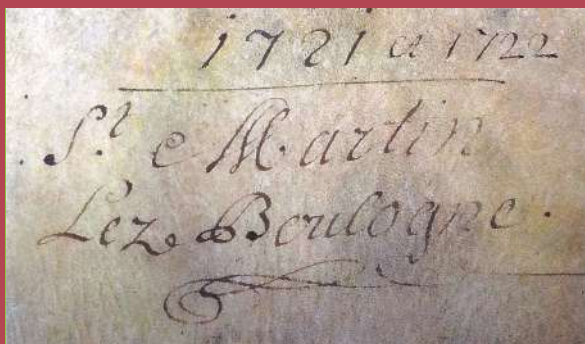 1721 et 1722
St. Martin
Lez Boulogne.